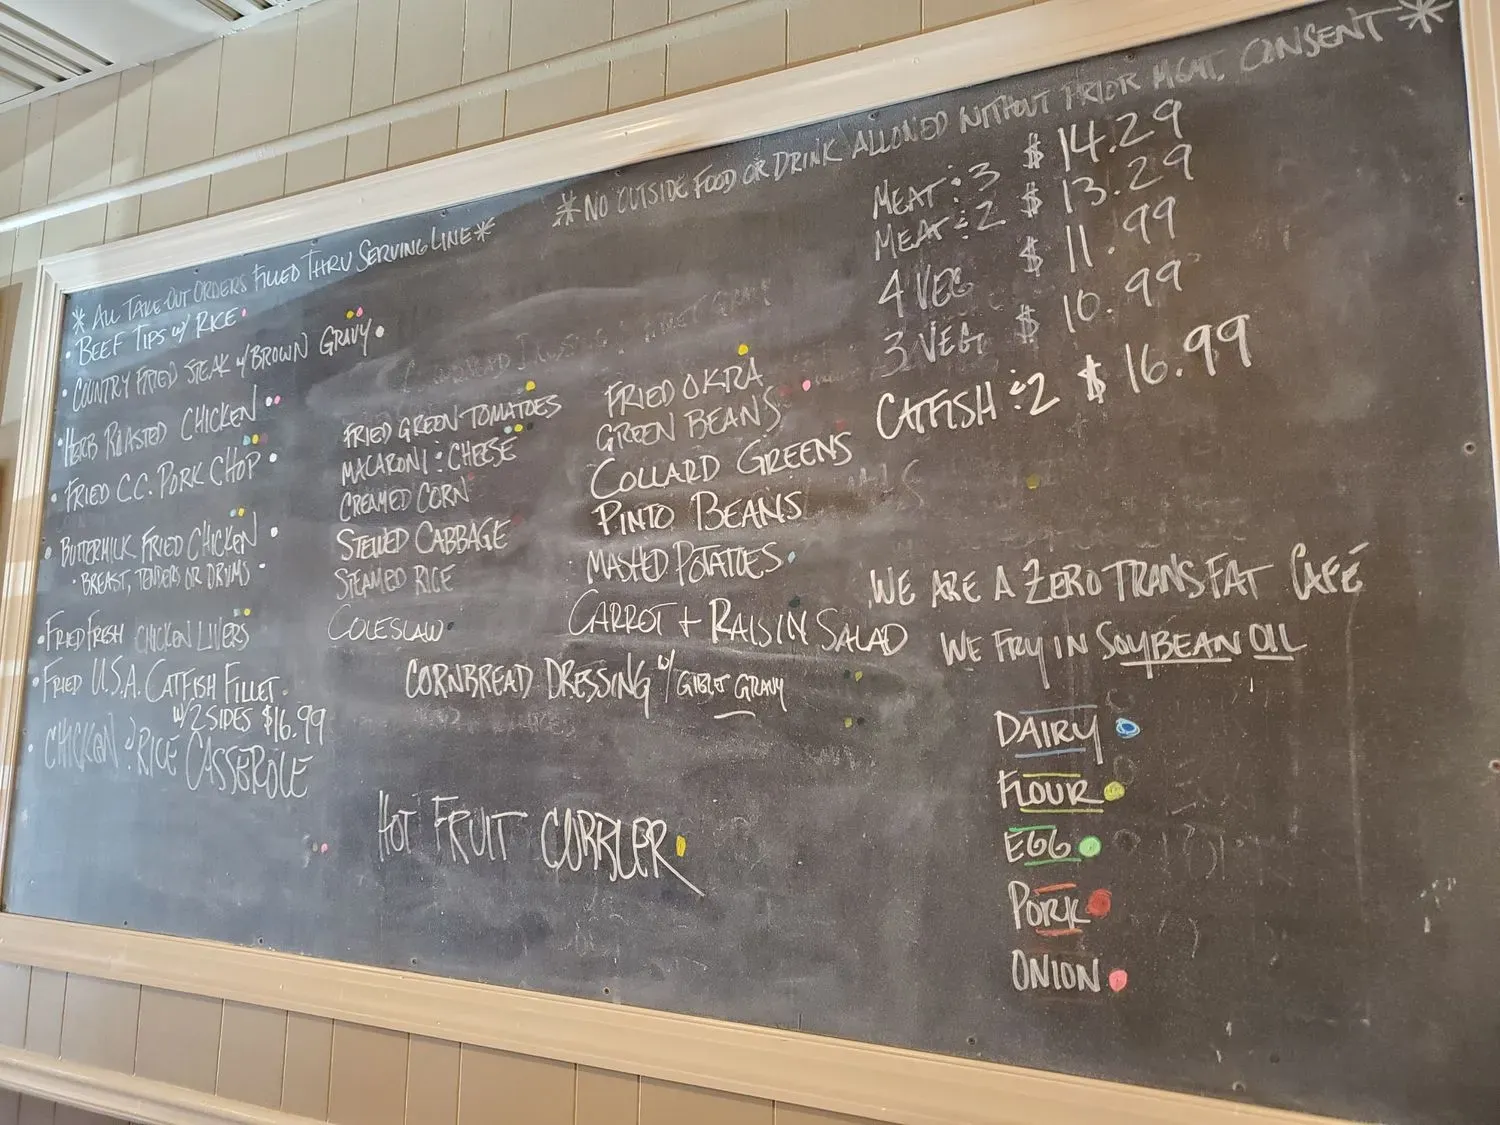 * NO OUTSIDE FOOD OR DRINK ALLOWED WITHOUT PRIOR MGMT. CONSENT *
* ALL TAKE OUT ORDERS FILLED THRU SERVING LINE *
• BEEF TIPS w/ RICE
• COUNTRY FRIED STEAK w/ BROWN GRAVY
• HERB ROASTED CHICKEN
• FRIED C.C. PORK CHOP
• BUTTERMILK FRIED CHICKEN
• BREAST, TENDERS OR DRUMS
• FRIED FRESH CHICKEN LIVERS
• FRIED U.S.A. CATFISH FILLET
w/ 2 SIDES $16.99
• CHICKEN & RICE CASSEROLE
FRIED GREEN TOMATOES
MACARONI & CHEESE
CREAMED CORN
STEWED CABBAGE
STEAMED RICE
COLESLAW
FRIED OKRA
GREEN BEANS
COLLARD GREENS
PINTO BEANS
MASHED POTATOES
CARROT + RAISIN SALAD
CORNBREAD DRESSING w/ GIBLET GRAVY
HOT FRUIT COBBLER
MEAT & 3 $14.29
MEAT & 2 $13.29
4 VEG $11.99
3 VEG $10.99
CATFISH & 2 $16.99
WE ARE A ZERO TRANS FAT CAFÉ
WE FRY IN SOYBEAN OIL
DAIRY
FLOUR
EGG
PORK
ONION